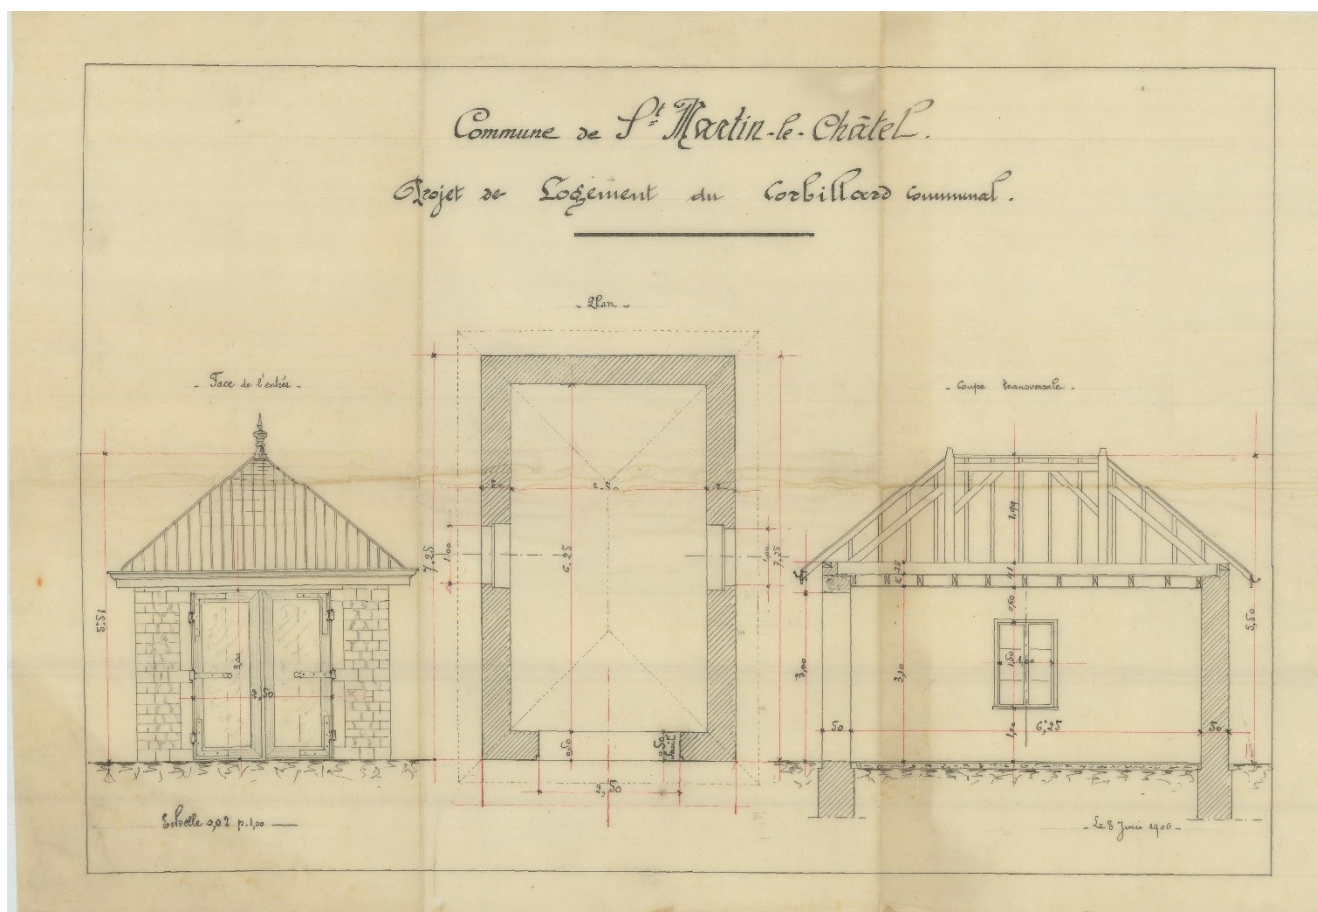 Commune de St Martin-le-Châtel.
Projet de Logement du Corbillard Communal.
- Plan -
- Face de l'entrée -
- Coupe transversale -
5,51
3,00
2,50
7,25
1,00
6,25
1,00
7,25
0,50
0,50
2,50
1,99
3,00
3,10
0,60
1,50
1,00
50
6,25
50
5,50
Echelle 0,02 p. 1,00
- Le 8 Juin 1906 -